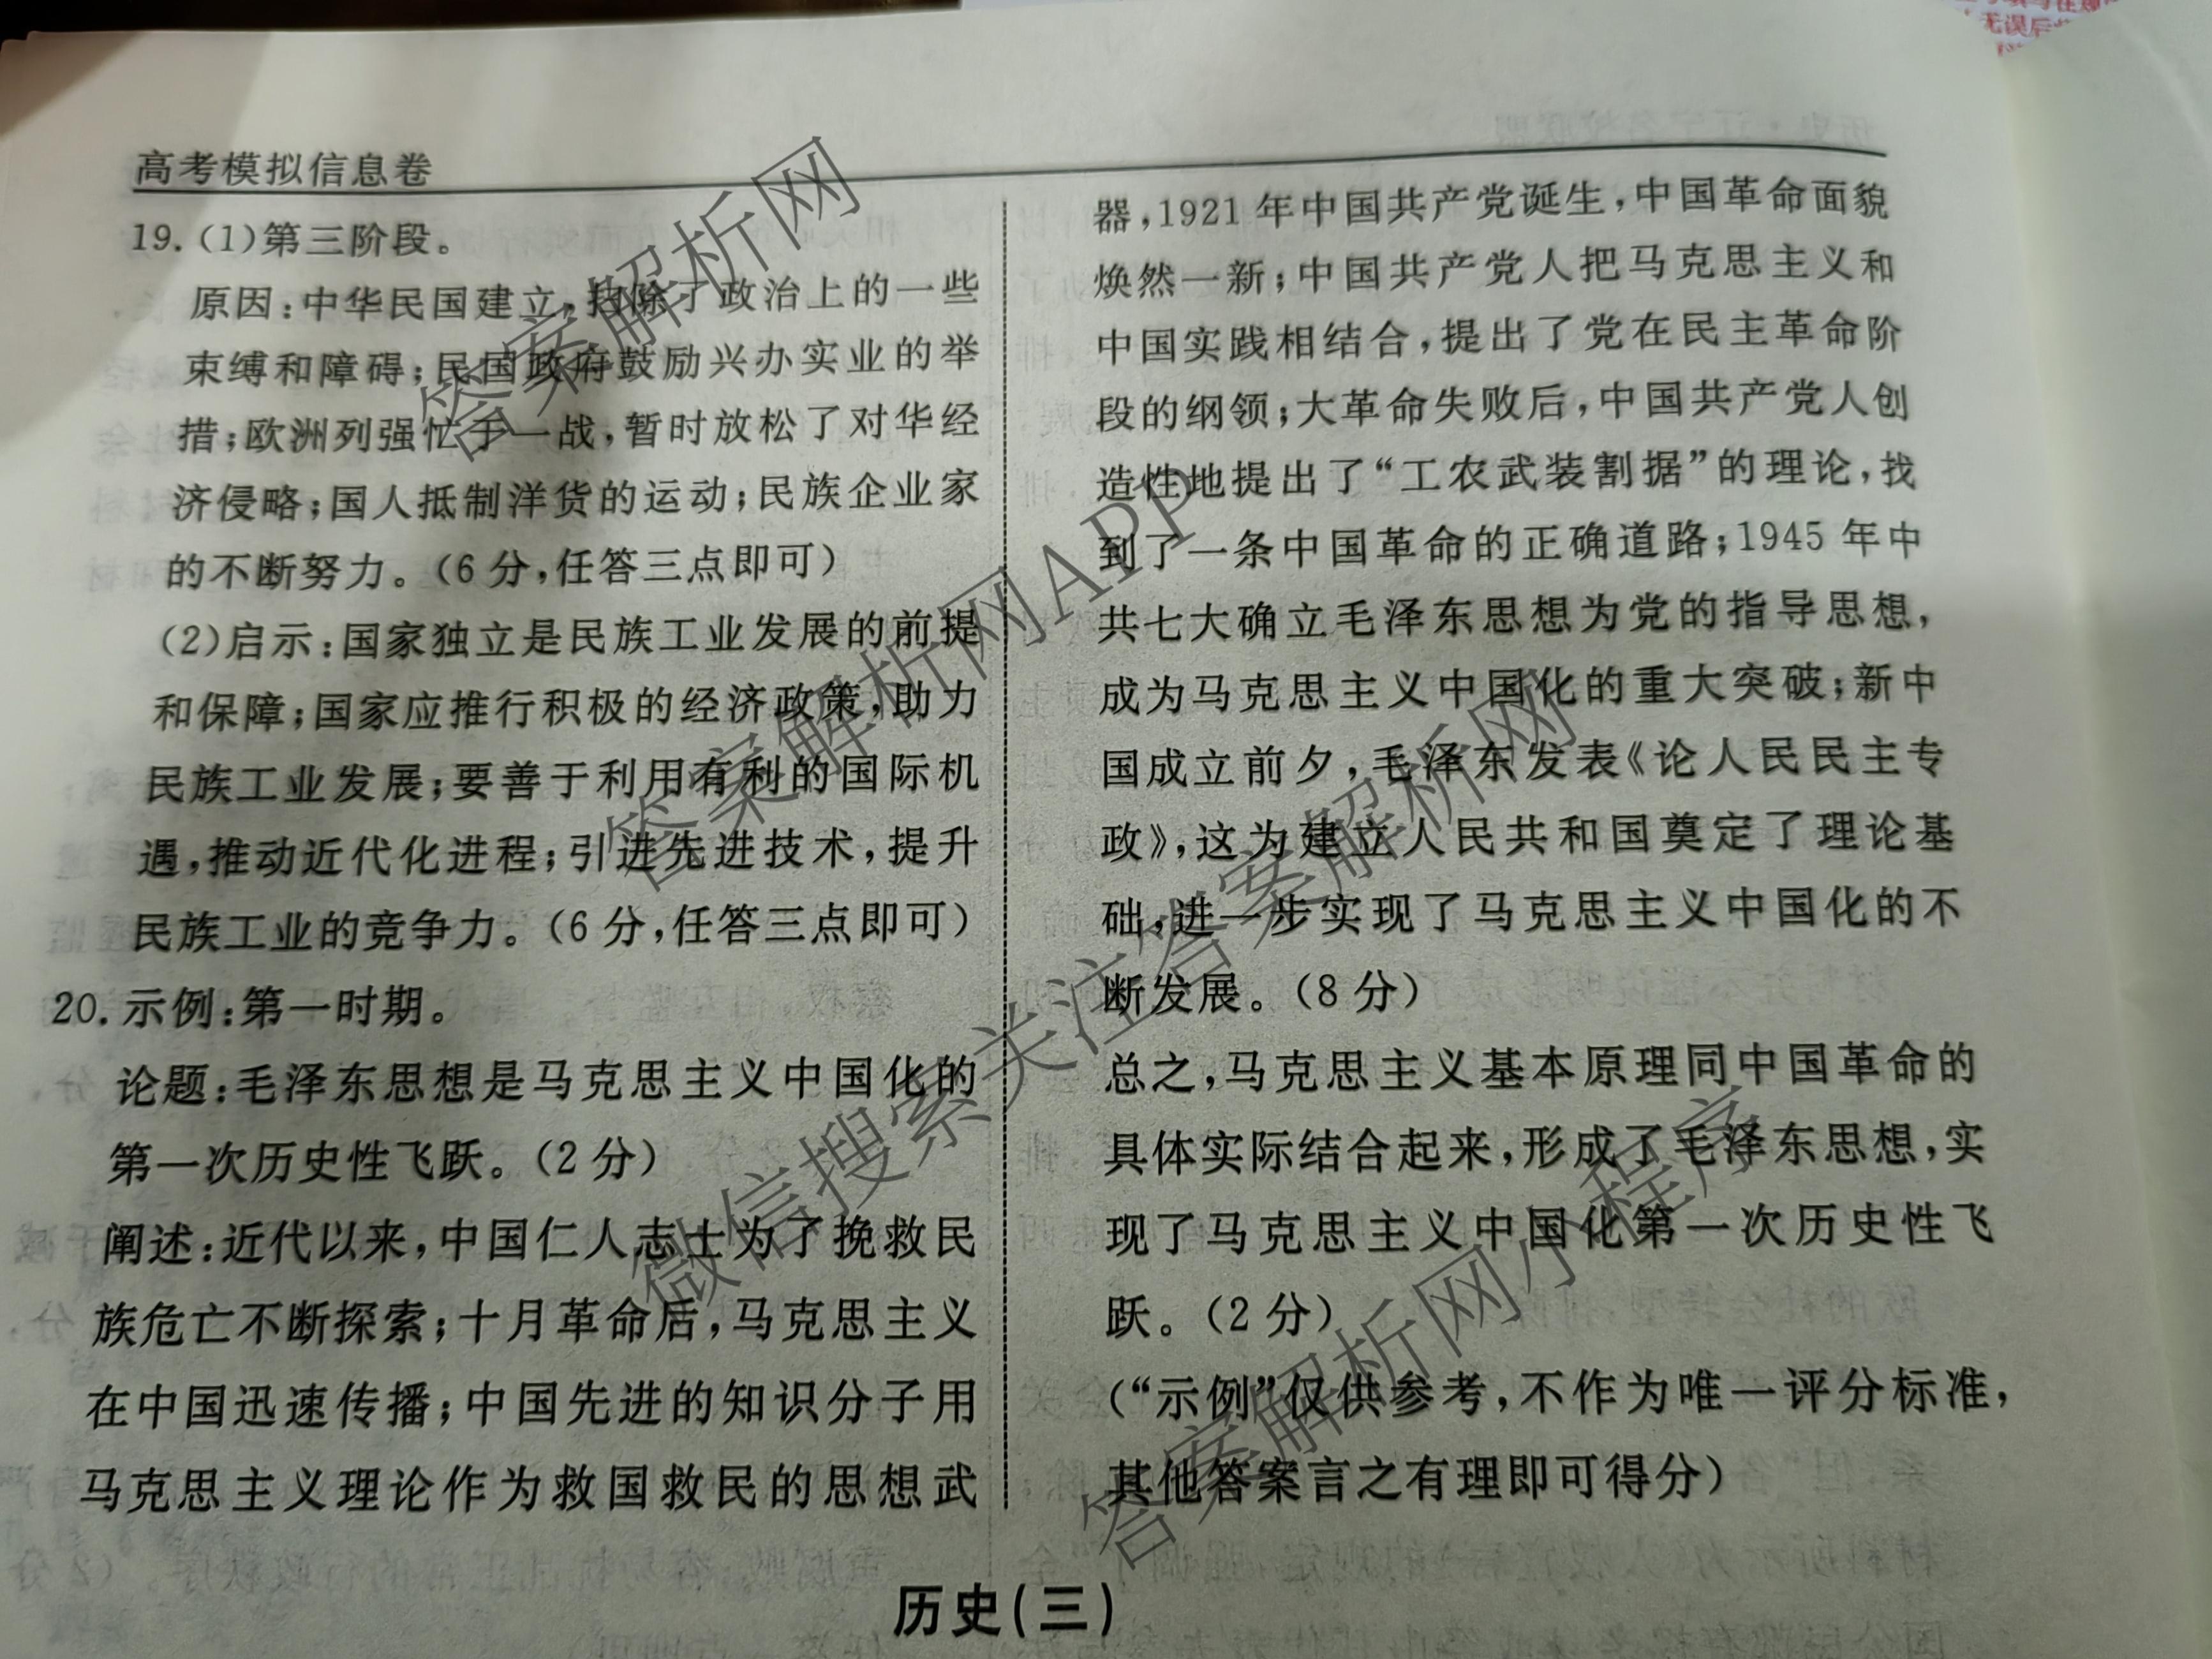 无误后
高考模拟信息卷
19.(1)第三阶段。
原因:中华民国建立,扫除了政治上的一些
束缚和障碍;民国政府鼓励兴办实业的举
措;欧洲列强忙于一战,暂时放松了对华经
济侵略;国人抵制洋货的运动;民族企业家
的不断努力。(6分,任答三点即可)
(2)启示:国家独立是民族工业发展的前提
和保障;国家应推行积极的经济政策,助力
民族工业发展;要善于利用有利的国际机
遇,推动近代化进程;引进先进技术,提升
民族工业的竞争力。(6分,任答三点即可)
20.示例:第一时期。
论题:毛泽东思想是马克思主义中国化的
第一次历史性飞跃。(2分)
阐述:近代以来,中国仁人志士为了挽救民
族危亡不断探索;十月革命后,马克思主义
在中国迅速传播;中国先进的知识分子用
马克思主义理论作为救国救民的思想武
器,1921年中国共产党诞生,中国革命面貌
焕然一新;中国共产党人把马克思主义和
中国实践相结合,提出了党在民主革命阶
段的纲领;大革命失败后,中国共产党人创
造性地提出了“工农武装割据”的理论,找
到了一条中国革命的正确道路;1945年中
共七大确立毛泽东思想为党的指导思想,
成为马克思主义中国化的重大突破;新中
国成立前夕,毛泽东发表《论人民民主专
政》,这为建立人民共和国奠定了理论基
础,进一步实现了马克思主义中国化的不
断发展。(8分)
总之,马克思主义基本原理同中国革命的
具体实际结合起来,形成了毛泽东思想,实
现了马克思主义中国化第一次历史性飞
跃。(2分)
(“示例”仅供参考,不作为唯一评分标准,
其他答案言之有理即可得分)
历史(三)
答案解析网
答案解析网APP
微信搜索关注答案解析网
答案解析网小程序